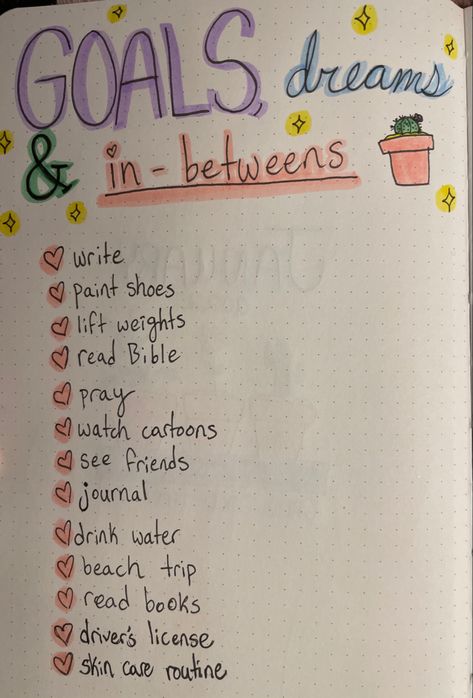 GOALS, dreams
& in-betweens
write
paint shoes
lift weights
read Bible
pray
watch cartoons
see friends
journal
drink water
beach trip
read books
driver's license
skin care routine